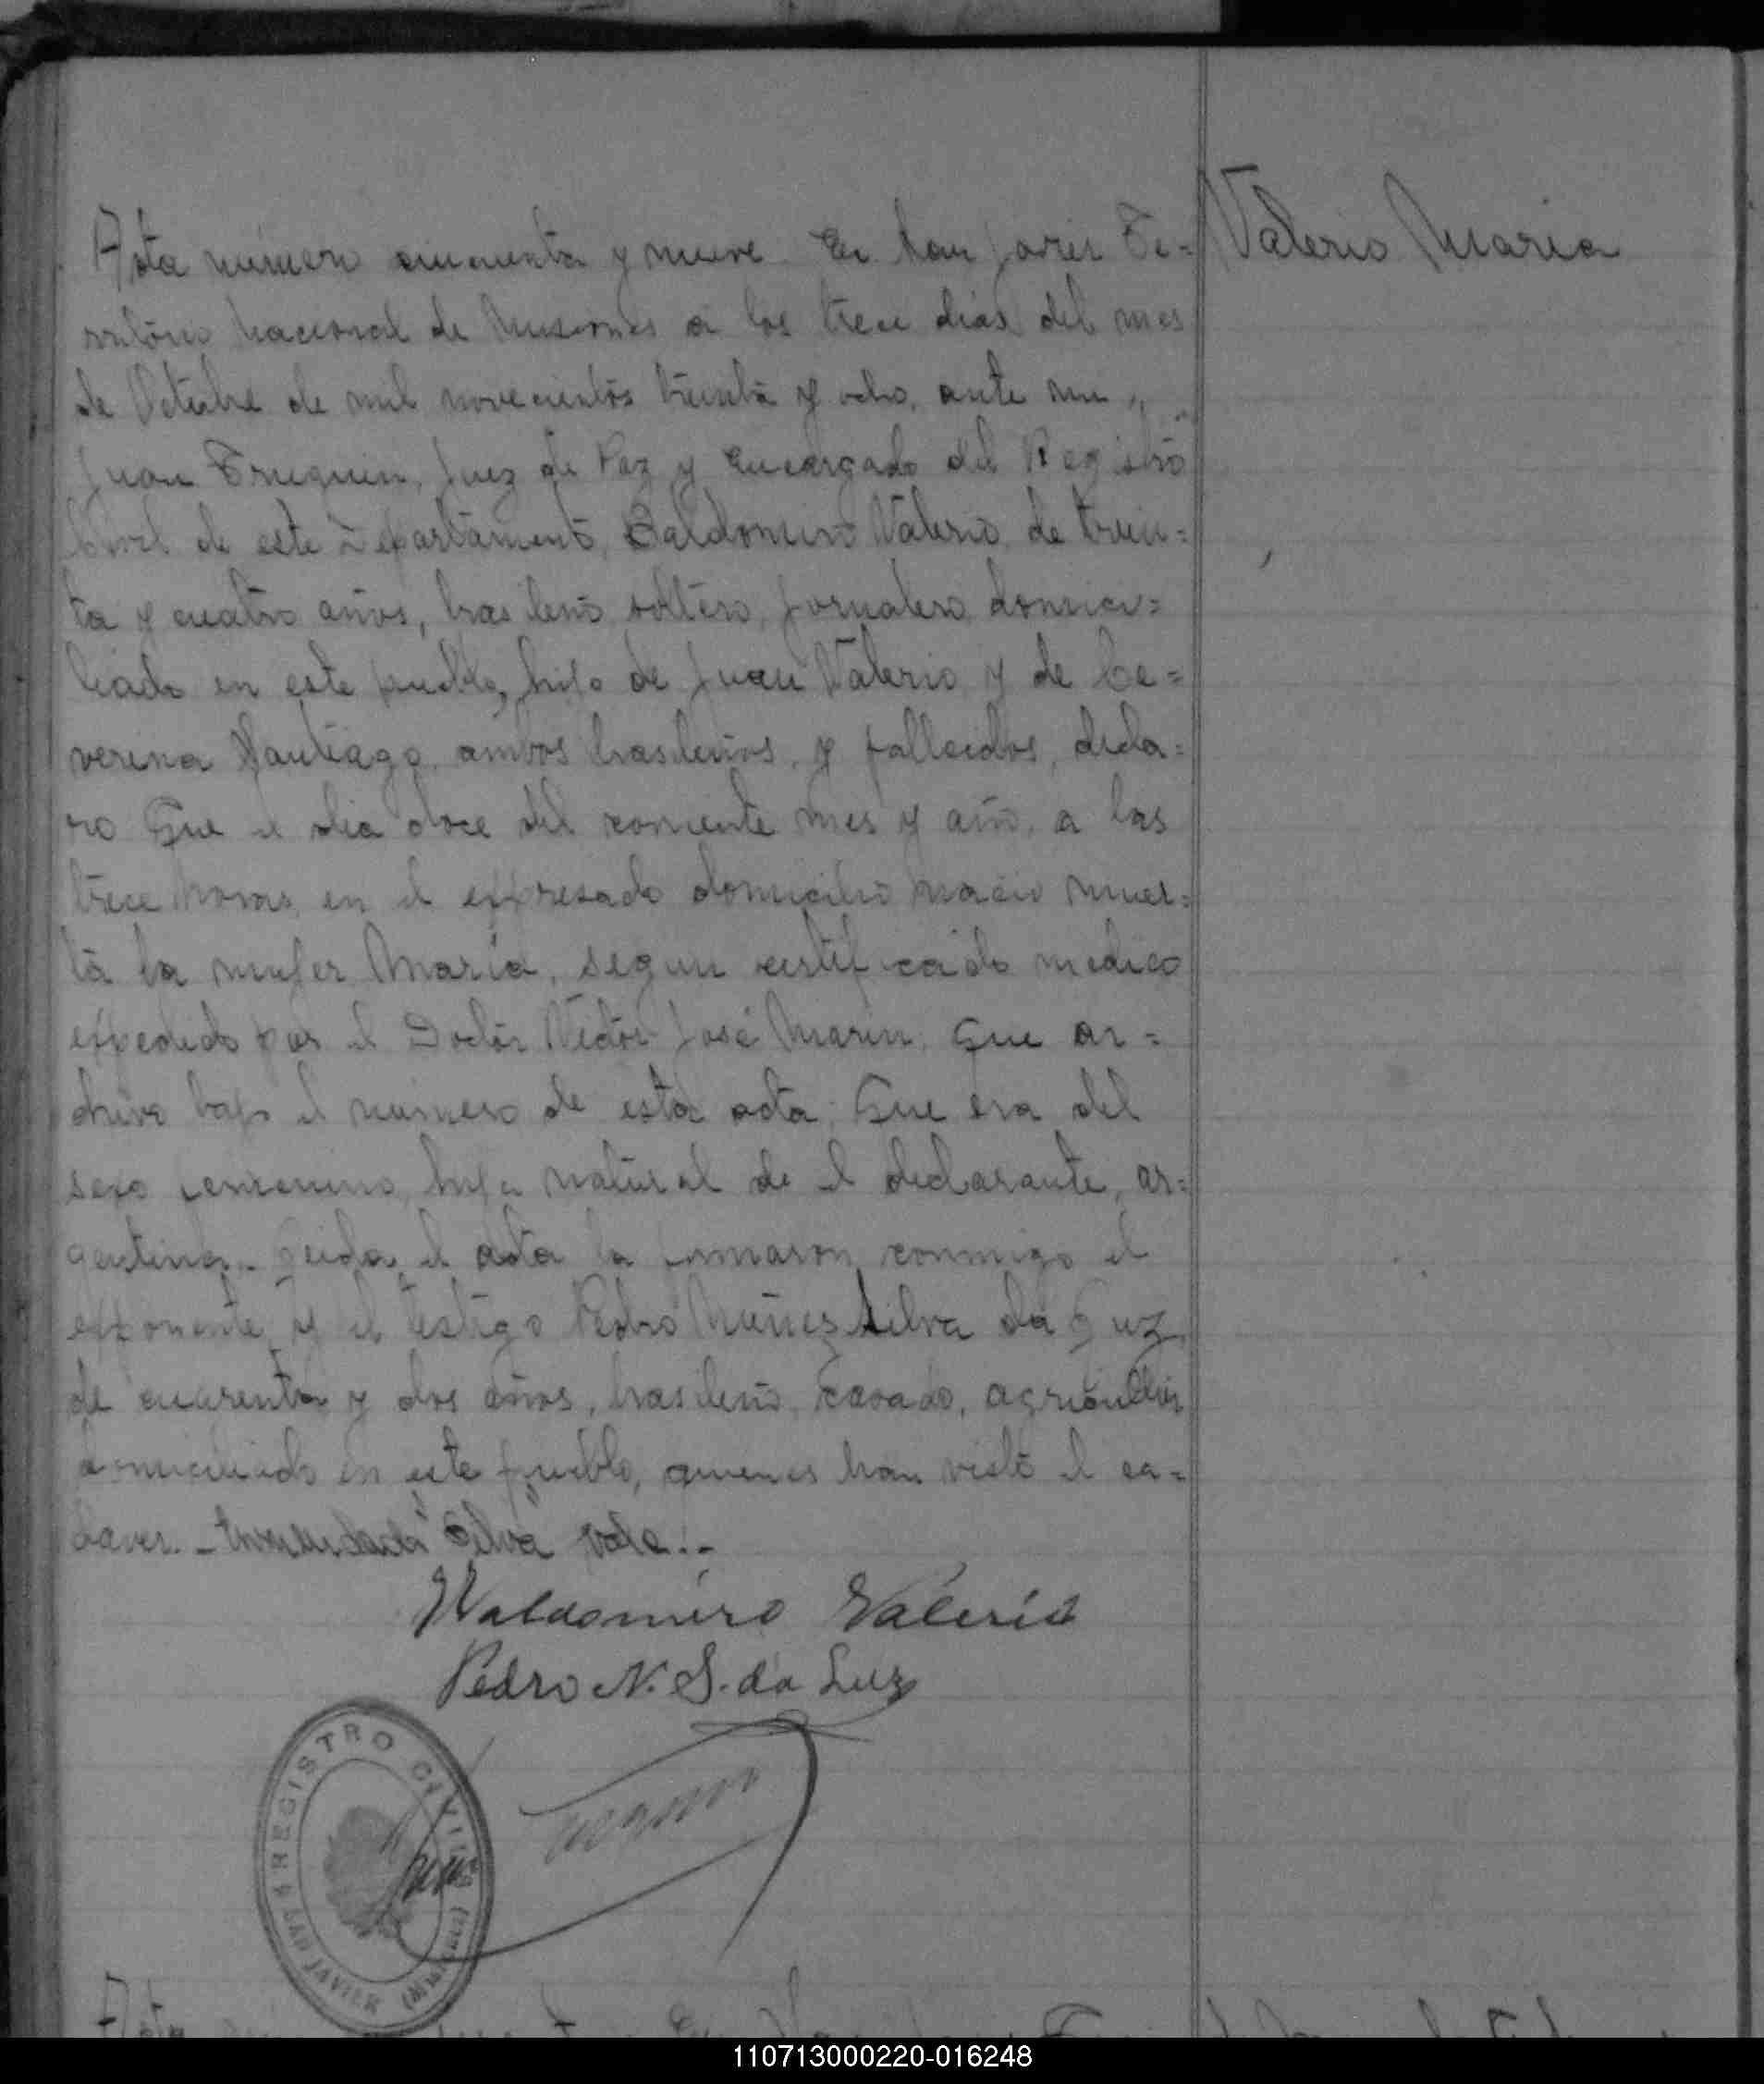 Acta número cincuenta y nueve. En San Javier Te=
rritorio Nacional de Misiones a los trece dias del mes
de Octubre de mil novecientos treinta y ocho, ante mi,
Juan Truquin, Juez de Paz y Encargado del Registro
Civil de este Departamento, Baldomiro Valerio de trein=
ta y cuatro años, brasileño soltero, jornalero domici=
liado en este pueblo, hijo de Juan Valerio y de Ce=
verina Santiago, ambos brasileños, y fallecidos, decla=
ro Que el dia doce del corriente mes y año, a las
trece horas, en el expresado domicilio nacio muer=
ta la mujer Maria, segun certificado medico
expedido por el Doctor Victor José Marin, Que ar=
chivo bajo el numero de esta acta: Que era del
sexo femenino, hija natural de el declarante, ar=
gentina.- Leida el acta la firmaron conmigo el
exponente y el testigo Pedro Nuñez Silva da Luz
de cuarenta y dos años, brasileño, casado, agricultor
domiciliado en este pueblo, quienes han visto el ca=
daver.- "Silva" vale.-
Waldomiro Valerio
Pedro N. S. da Luz
REGISTRO CIVIL
SAN JAVIER (Misiones)
Valerio Maria
110713000220-016248